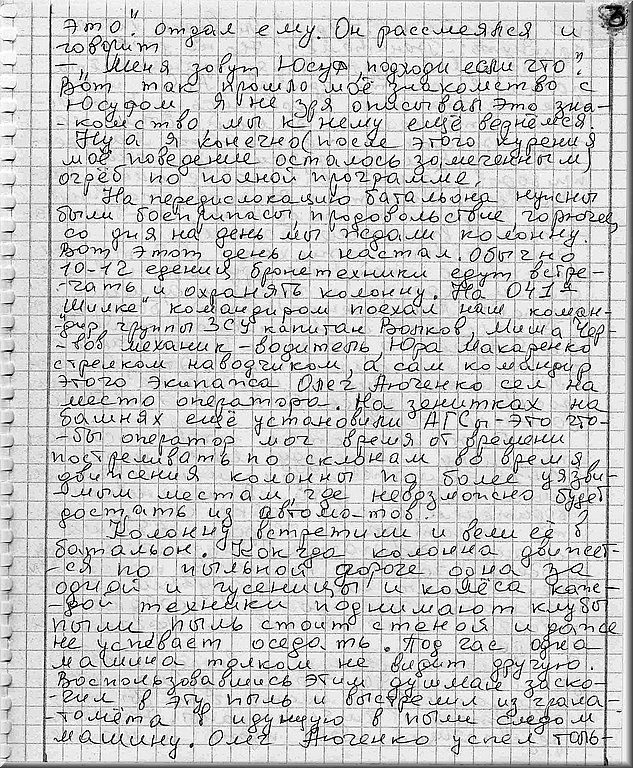 8
Это". отдал ему. Он рассмеялся и
говорит
— "Меня зовут Юсуф, подходи если что".
Вот так прошло моё знакомство с
Юсуфом. Я не зря описываю это зна-
-комство мы к нему ещё вернёмся.
Ну а я конечно (после этого курения
моё поведение осталось замеченным)
огрёб по полной программе.
На передислокацию батальона нужны
были боеприпасы, продовольствие горючее,
со дня на день мы ждали колонну.
Вот этот день и настал. Обычно
10-12 едениц бронетехники едут встре-
-чать и охранять колонну. На 041й
"Шилке" командиром поехал наш коман-
-дир группы ЗСУ капитан Волков, Миша
-вов механик-водитель, Юра Макаренко
стрелком наводчиком, а сам командир
этого экипажа Олег Аюченко сел на
место оператора. На зенитках на
башнях ещё установили АГСы-это что-
-бы оператор мог время от времени
постреливать по склонам во время
движения колонны по более уязви-
-мым местам, где невозможно будет
достать из автоматов.
Колонну встретили и вели её в
батальон. Когда колонна движет-
-ся по пыльной дороге одна за
одной и гусеницы и колёса каж-
-дой техники поднимают клубы
пыли пыль стоит стеной и даже
не успевает оседать. Под час одна
машина толком не видит другую.
Воспользовавшись этим душман заско-
-чил в эту пыль и выстрелил из грана-
-томёта в идущую в пыли следом
машину. Олег Аюченко успел толь-